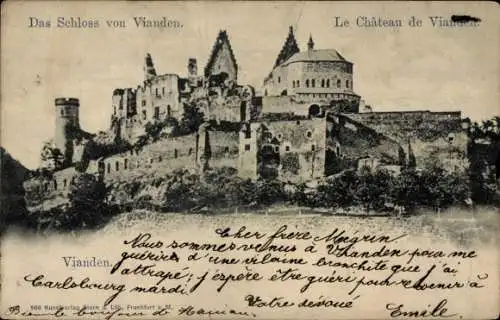 Das Schloss von Vianden.
Le Château de Vianden.
Cher frère Mégrin
Nous sommes venus à Vianden pour me
Vianden.
guérir d'une vilaine bronchite que j'ai
attrapée, j'espère être guéri pour revenir à
Carlsbourg mardi.
Votre dévoué
Emile
566 Kunstverlag Stern & Löb, Frankfurt a. M.
Bien le bonjour de Maman.